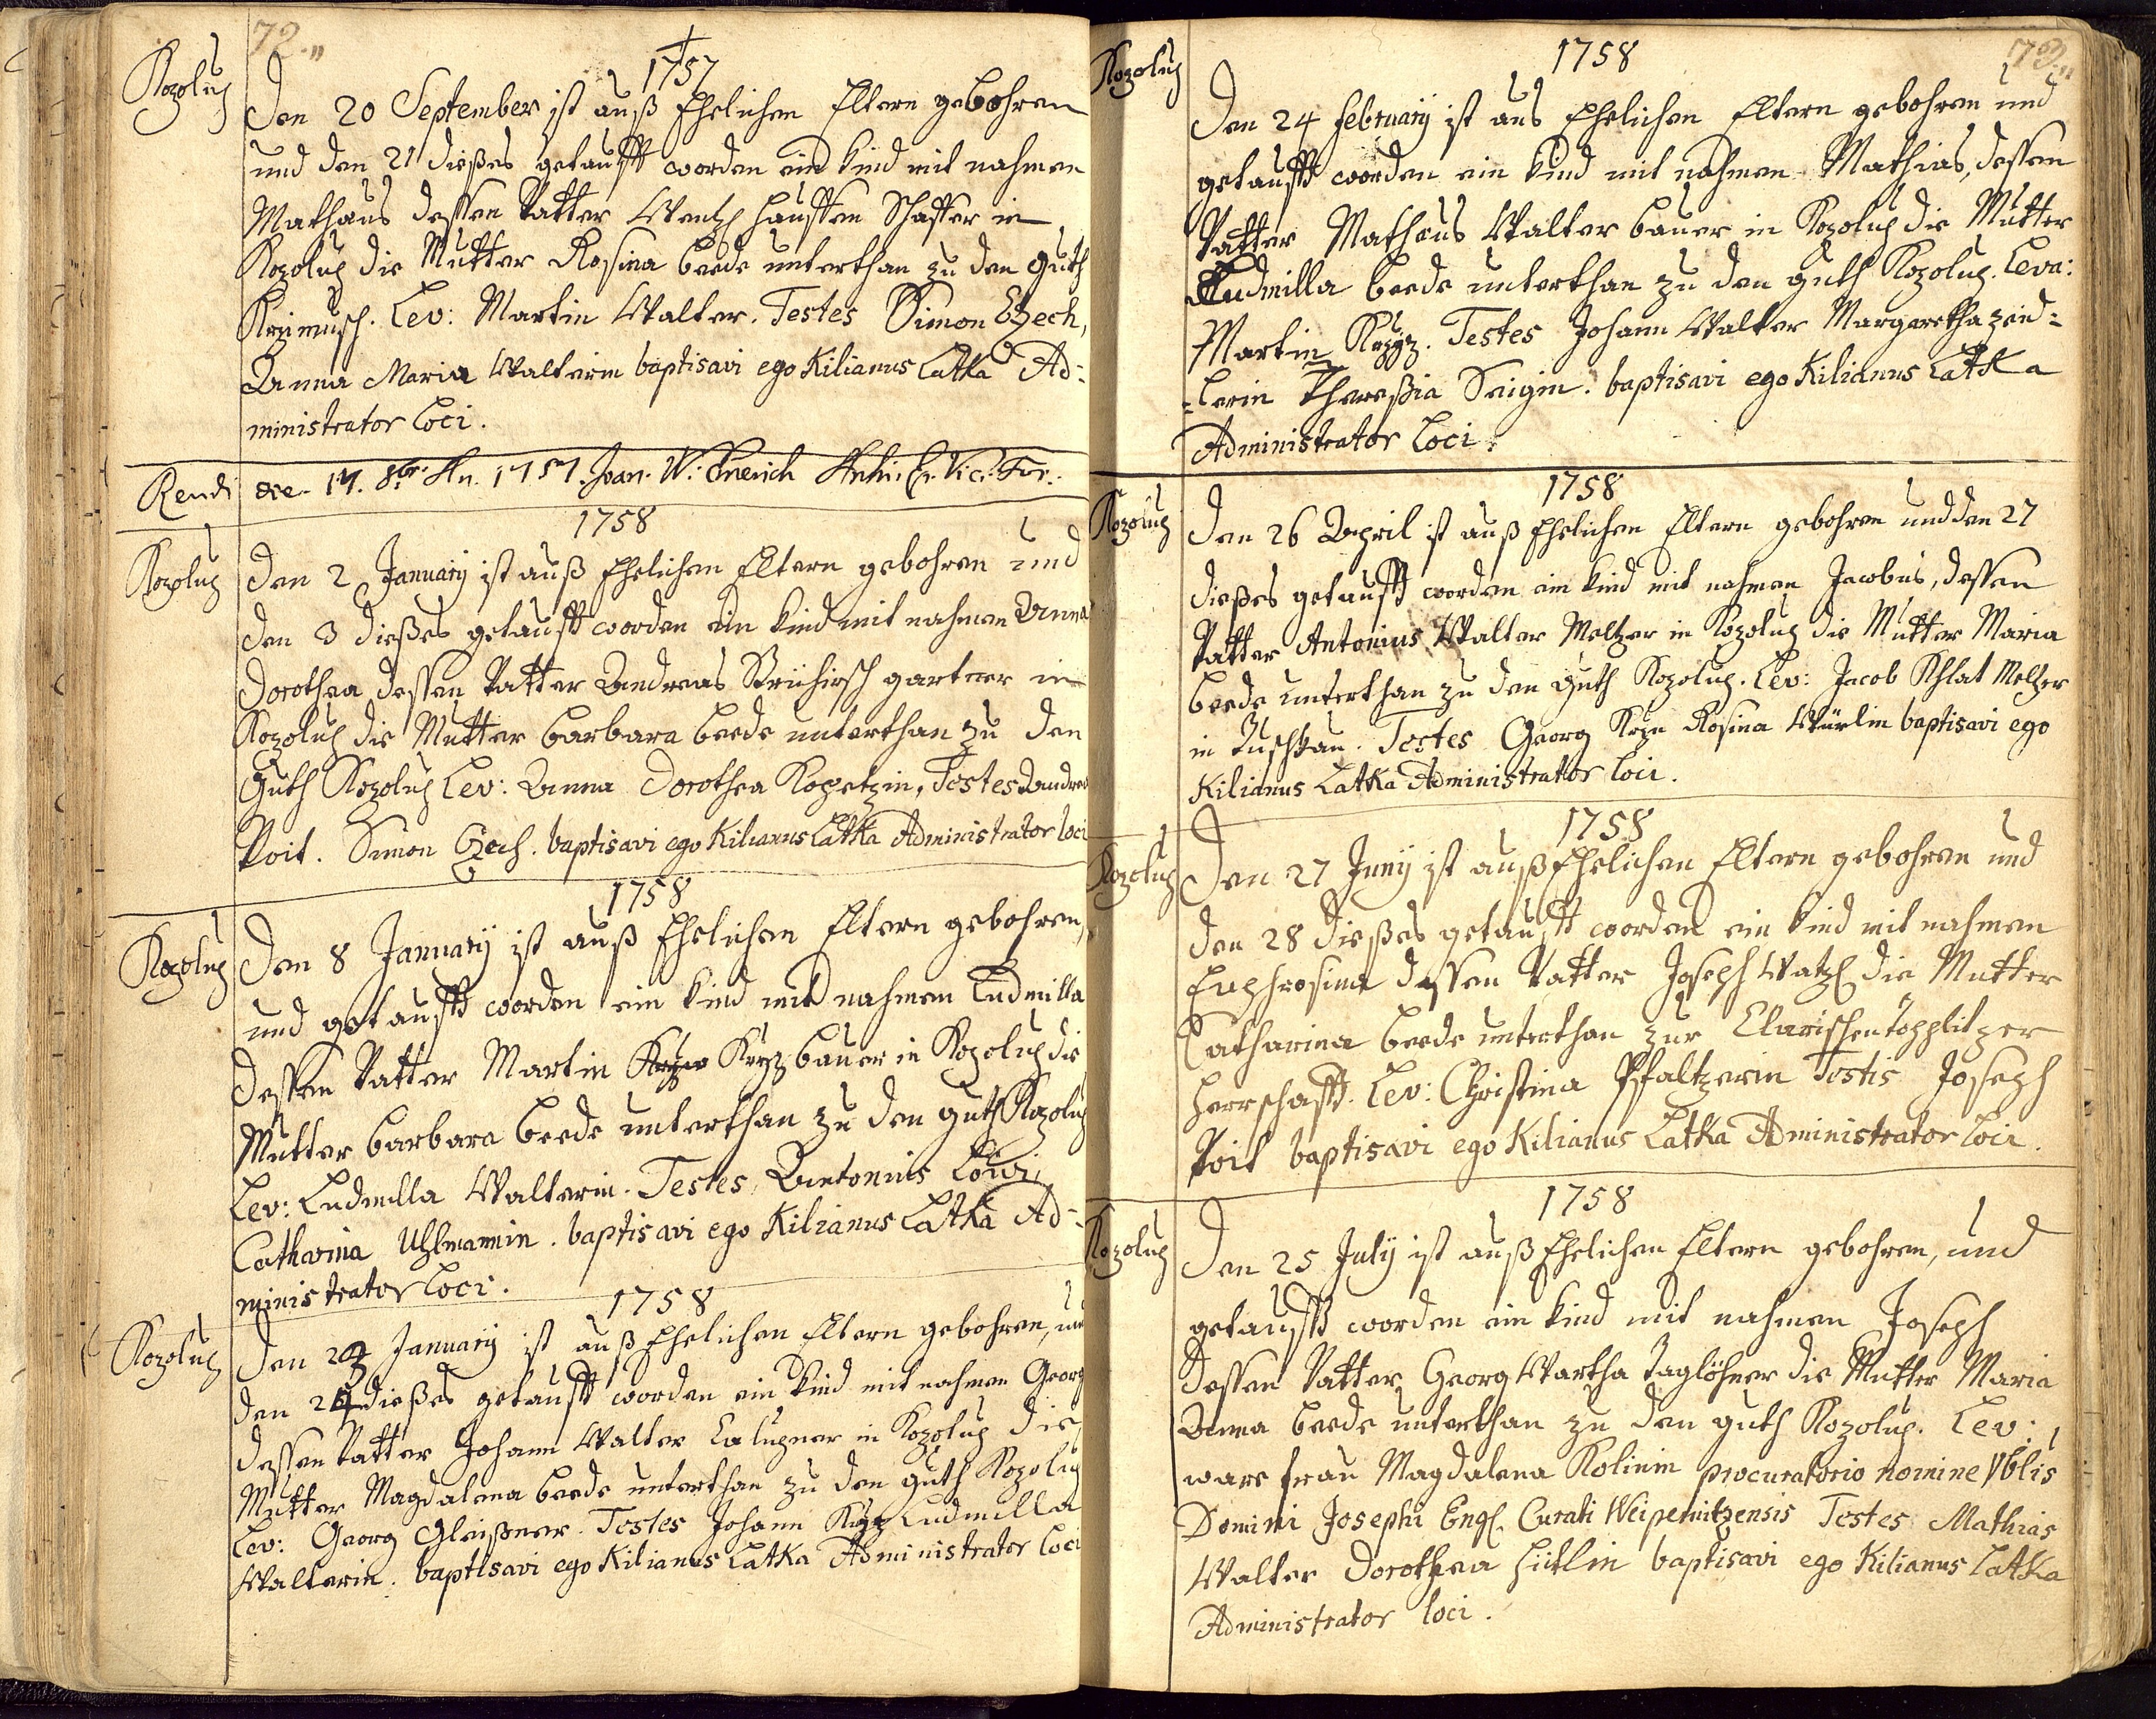 72.
1757
Kozolup
Den 20 September ist auß Ehelichen Eltern gebohren
und den 21 dießes getaufft worden ein kind mit nahmen
Mathæus dessen Vatter Wentzl Schaffer in
Kozolup die Mutter Rosina beede unterthan zu den Guth
Krzimusch. Lev: Martin Walter. Testes Simon Czech,
Anna Maria Walterin baptisavi ego Kilianus Latka Ad-
ministrator Loci.
17. 8br. An. 1757. Joan. W:
1758
Kozolup
Den 2 January ist auß Ehelichen Eltern gebohren und
den 3 dießes getaufft worden ein kind mit nahmen Anna
Dorothea dessen Vatter Andreas gartner in
Kozolup die Mutter Barbara beede unterthan zu den
Guth Kozolup Lev: Anna Dorothea Kopetzin, Testes Andreas
Voit. Simon Czech. baptisavi ego Kilianus Latka Administrator loci
1758
Kozolup
Den 8 January ist auß Ehelichen Eltern gebohren,
und getaufft worden ein kind mit nahmen Ludmilla
dessen Vatter Martin Kryz bauer in Kozolup die
Mutter Barbara beede unterthan zu den guth Kozolup
Lev: Ludmilla Walterin. Testes Antonius
Catharina Uhlmannin. baptisavi ego Kilianus Latka Ad-
ministrator Loci.
1758
Kozolup
Den January ist auß Ehelichen Eltern gebohren, und
den 24 dießes getaufft worden ein kind mit nahmen Georg
dessen Vatter Johann Walter Calupner in Kozolup die
Mutter Magdalena beede unterthan zu den guth Kozolup
Lev: Georg Gleißner. Testes Johann Ludmilla
Walterin. baptisavi ego Kilianus Latka Administrator loci
73.
1758
Kozolup
Den 24 february ist aus Ehelichen Eltern gebohren und
getaufft worden ein kind mit nahmen Mathias, dessen
Vatter Mathæus Walter bauer in Kozolup die Mutter
Ludmilla beede unterthan zu den guth Kozolup. Leva:
Martin Krzyz. Testes Johann Walter Margaretha Zeid=
=lerin Theresia baptisavi ego Kilianus Latka
Administrator Loci.
1758
Kozolup
Den 26 April ist auß Ehelichen Eltern gebohren und den 27
dießes getaufft worden ein kind mit nahmen Jacobus, dessen
Vatter Antonius Walter Meltzer in Kozolup die Mutter Maria
beede unterthan zu den Guth Kozolup. Lev: Jacob Melzer
in Tuschkau. Testes Georg Rosina baptisavi ego
Kilianus Latka Administrator loci.
1758
Kozolup
Den 27 Juny ist auß Ehelichen Eltern gebohren und
den 28 dießes getaufft worden ein kind mit nahmen
Euphrosina dessen Vatter Joseph Watzl die Mutter
Catharina beede unterthan zur Clarischen Töpplitzer
Herrschafft. Lev: Christina Pfaltzerin Testis Joseph
Voit baptisavi ego Kilianus Latka Administrator Loci.
1758
Kozolup
Den 25 July ist auß Ehelichen Eltern gebohren, und
getaufft worden ein kind mit nahmen Joseph
dessen Vatter Georg Wartha Taglöhner die Mutter Maria
Anna beede unterthan zu den guth Kozolup. Lev:
ware frau Magdalena Kolinin procuratorio nomine
Domini Josephi Engl. Curati Weipernitzensis Testes Mathias
Walter Dorothea Hütlin baptisavi ego Kilianus Latka
Administrator loci.